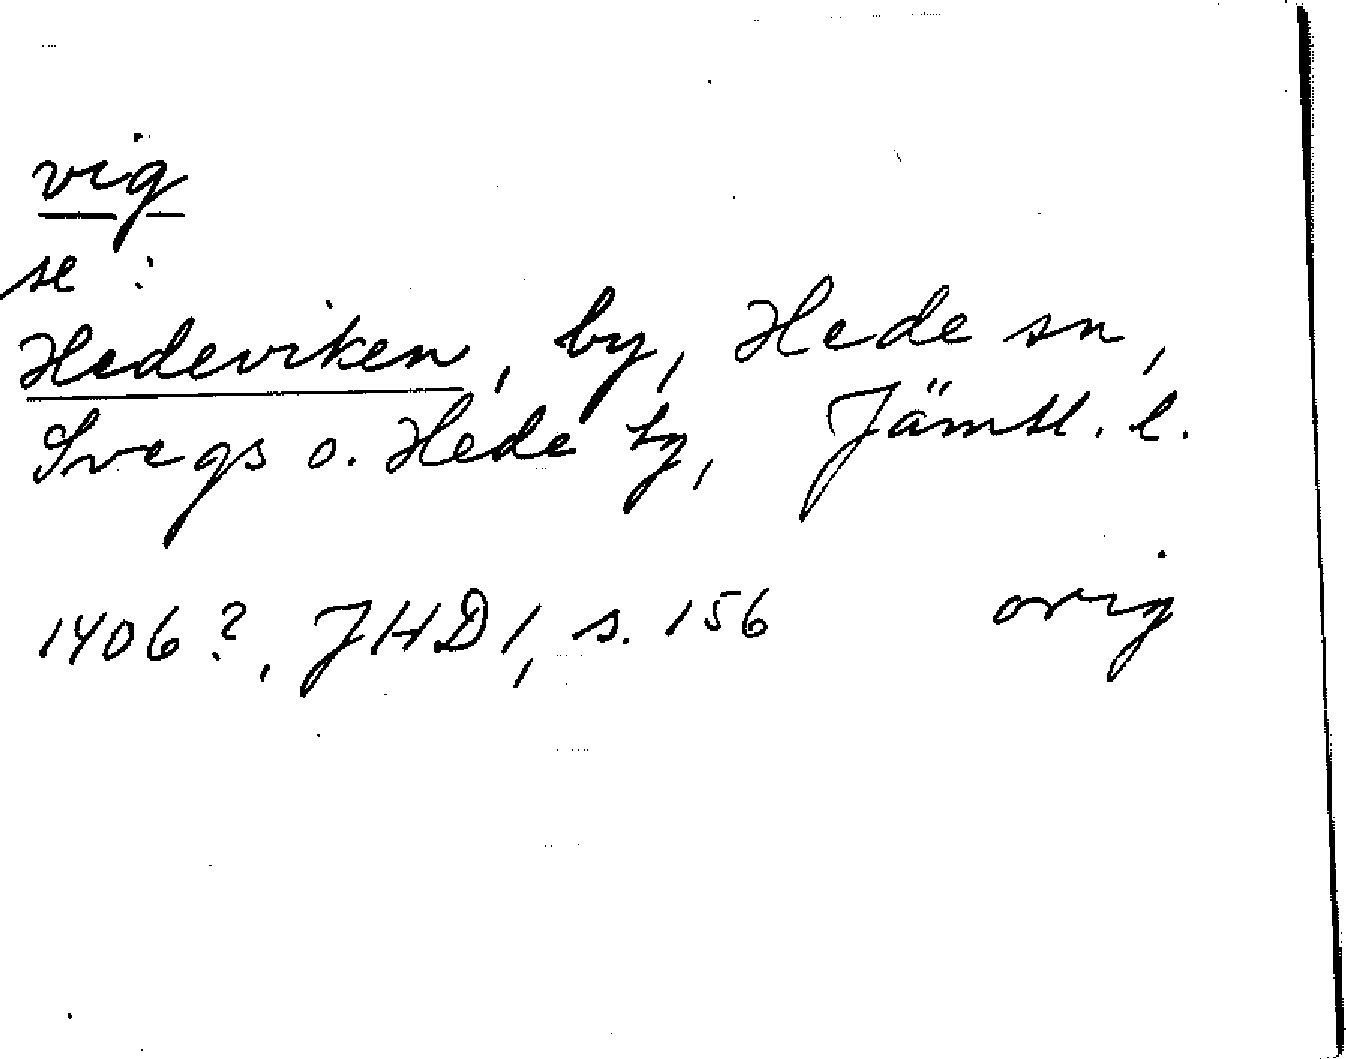 vig
se :
Hedeviken, by, Hede sn,
Svegs o. Hede tg, Jämtl. l.
1406?, JHD 1, s. 156 orig